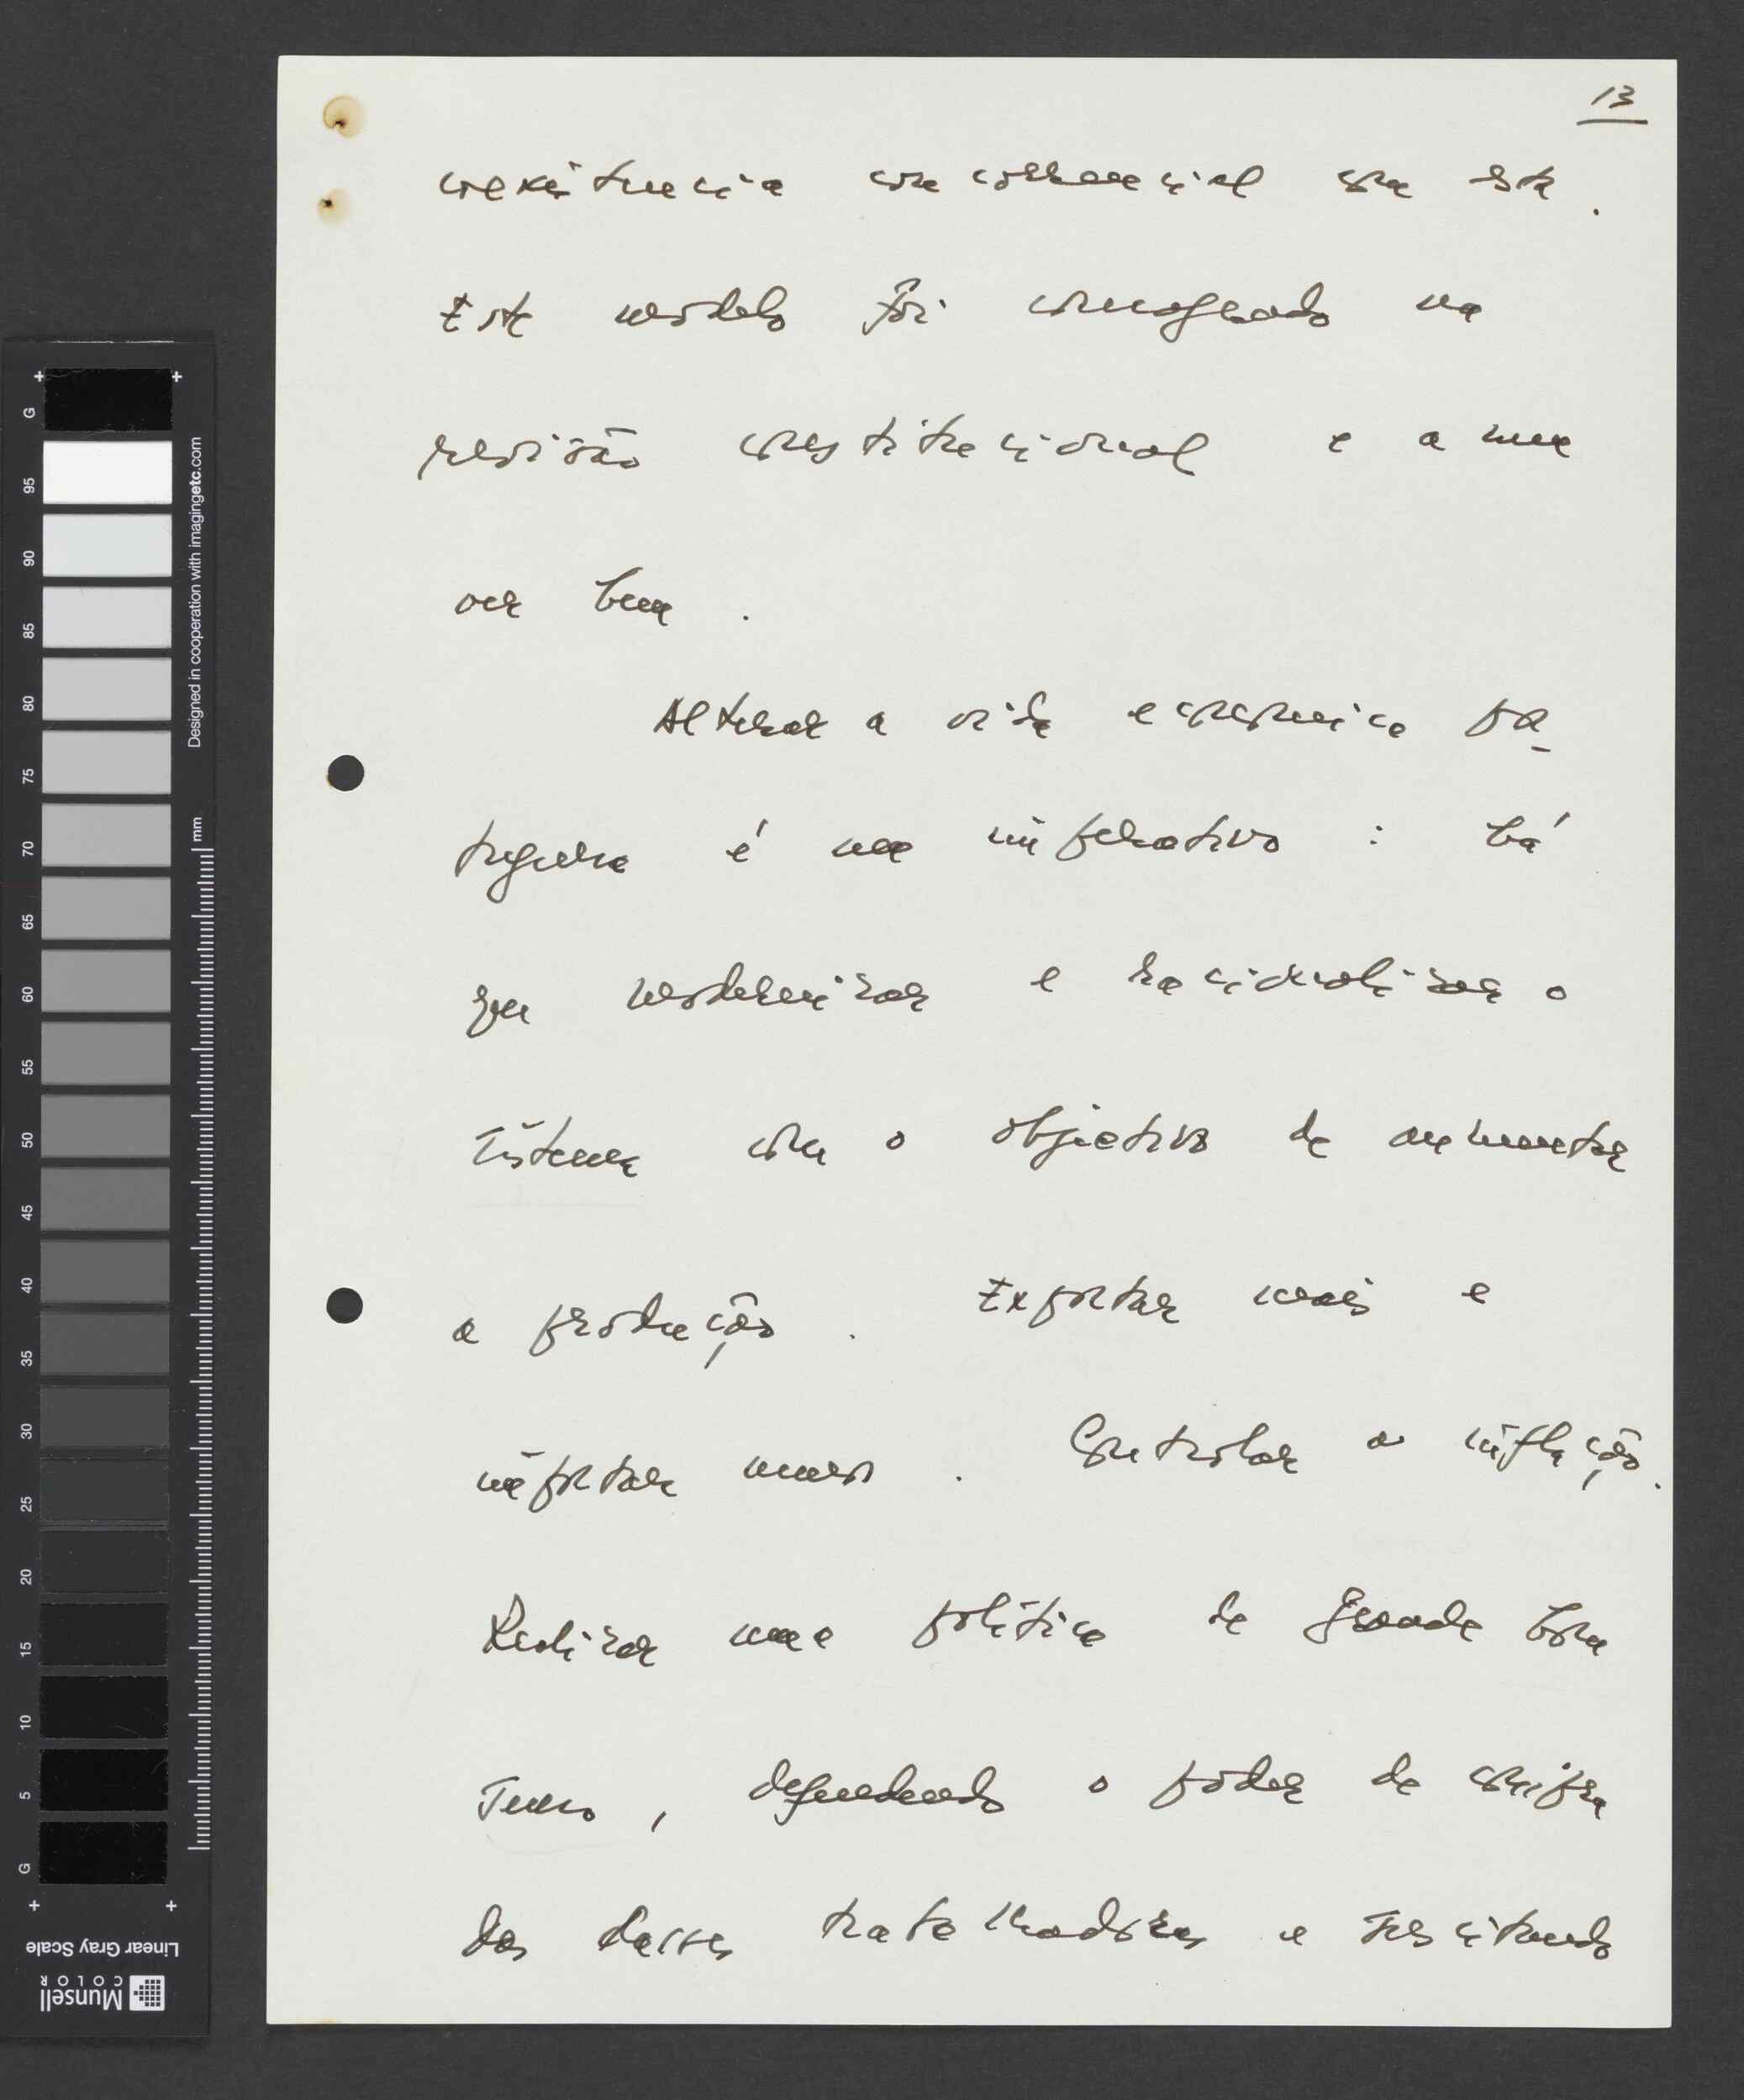 13
coexistencia concorrencial com este.
Este modelo foi consagrado na
revisão constitucional e a meu
ver bem.
Alterar a vida economica por_
tuguesa é um imperativo : há
que modernizar e racionalizar o
sistema com o objectivo de aumentar
a produção. Exportar mais e
importar menos. Controlar a inflação.
Realizar uma politica de grande bom
senso, defendendo o poder de compra
das classes trabalhadoras e suscitando
+ +
G
95
90
85
80
75
70
65
60
55
50
45
40
35
30
25
20
15
10
5
G
+ +
Designed in cooperation with imagingetc.com
mm
Linear Gray Scale
Munsell
COLOR